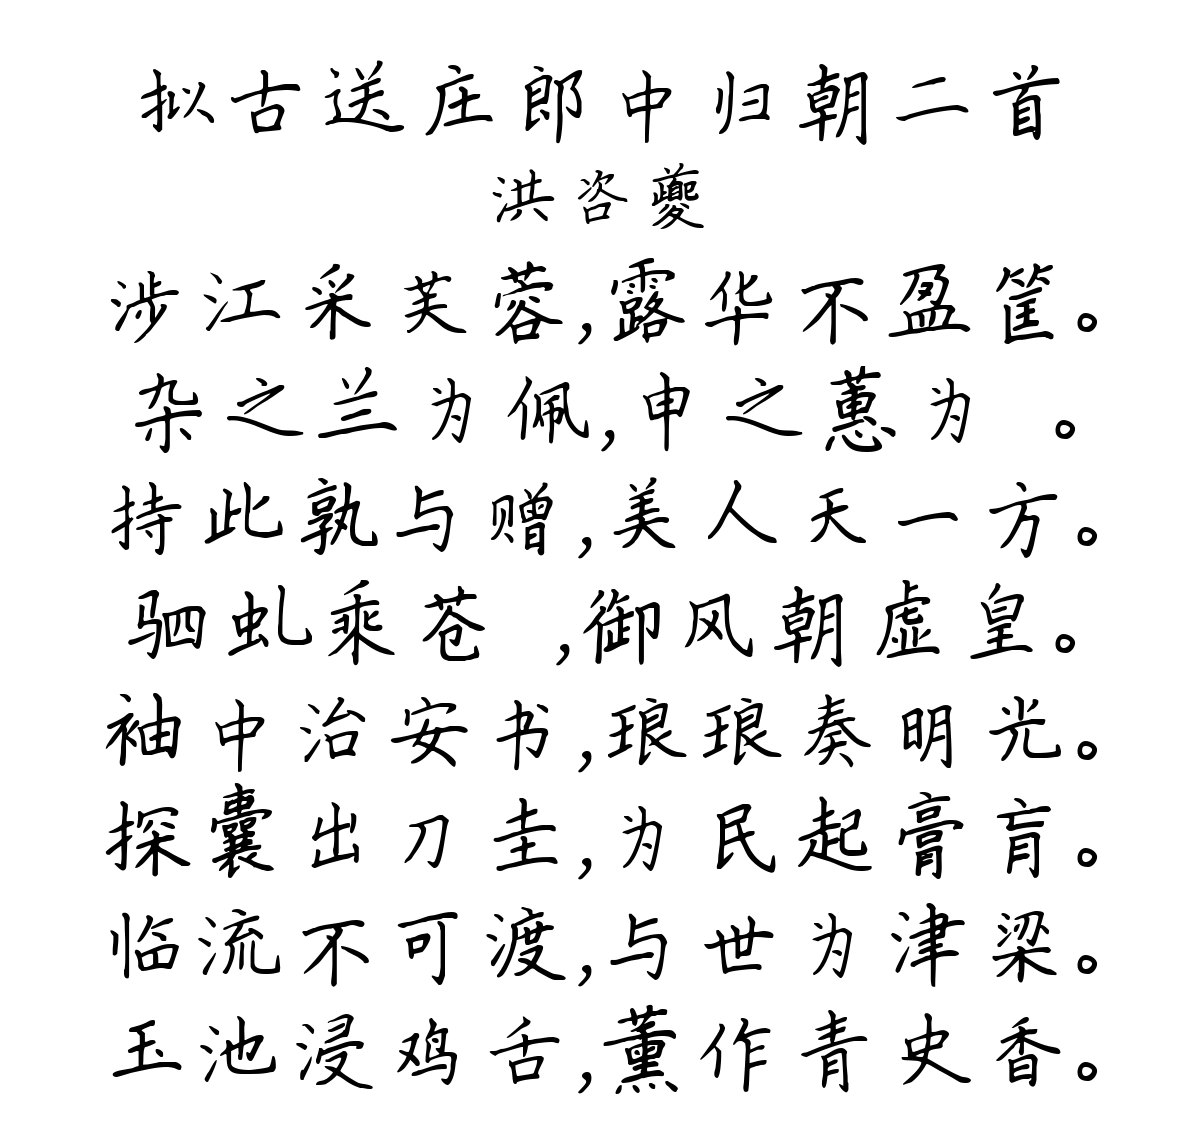 拟古送庄郎中归朝二首
洪咨夔
涉江采芙蓉,露华不盈筐。
杂之兰为佩,申之蕙为 。
持此孰与赠,美人天一方。
驷虬乘苍 ,御风朝虚皇。
袖中治安书,琅琅奏明光。
探囊出刀圭,为民起膏肓。
临流不可渡,与世为津梁。
玉池浸鸡舌,薰作青史香。